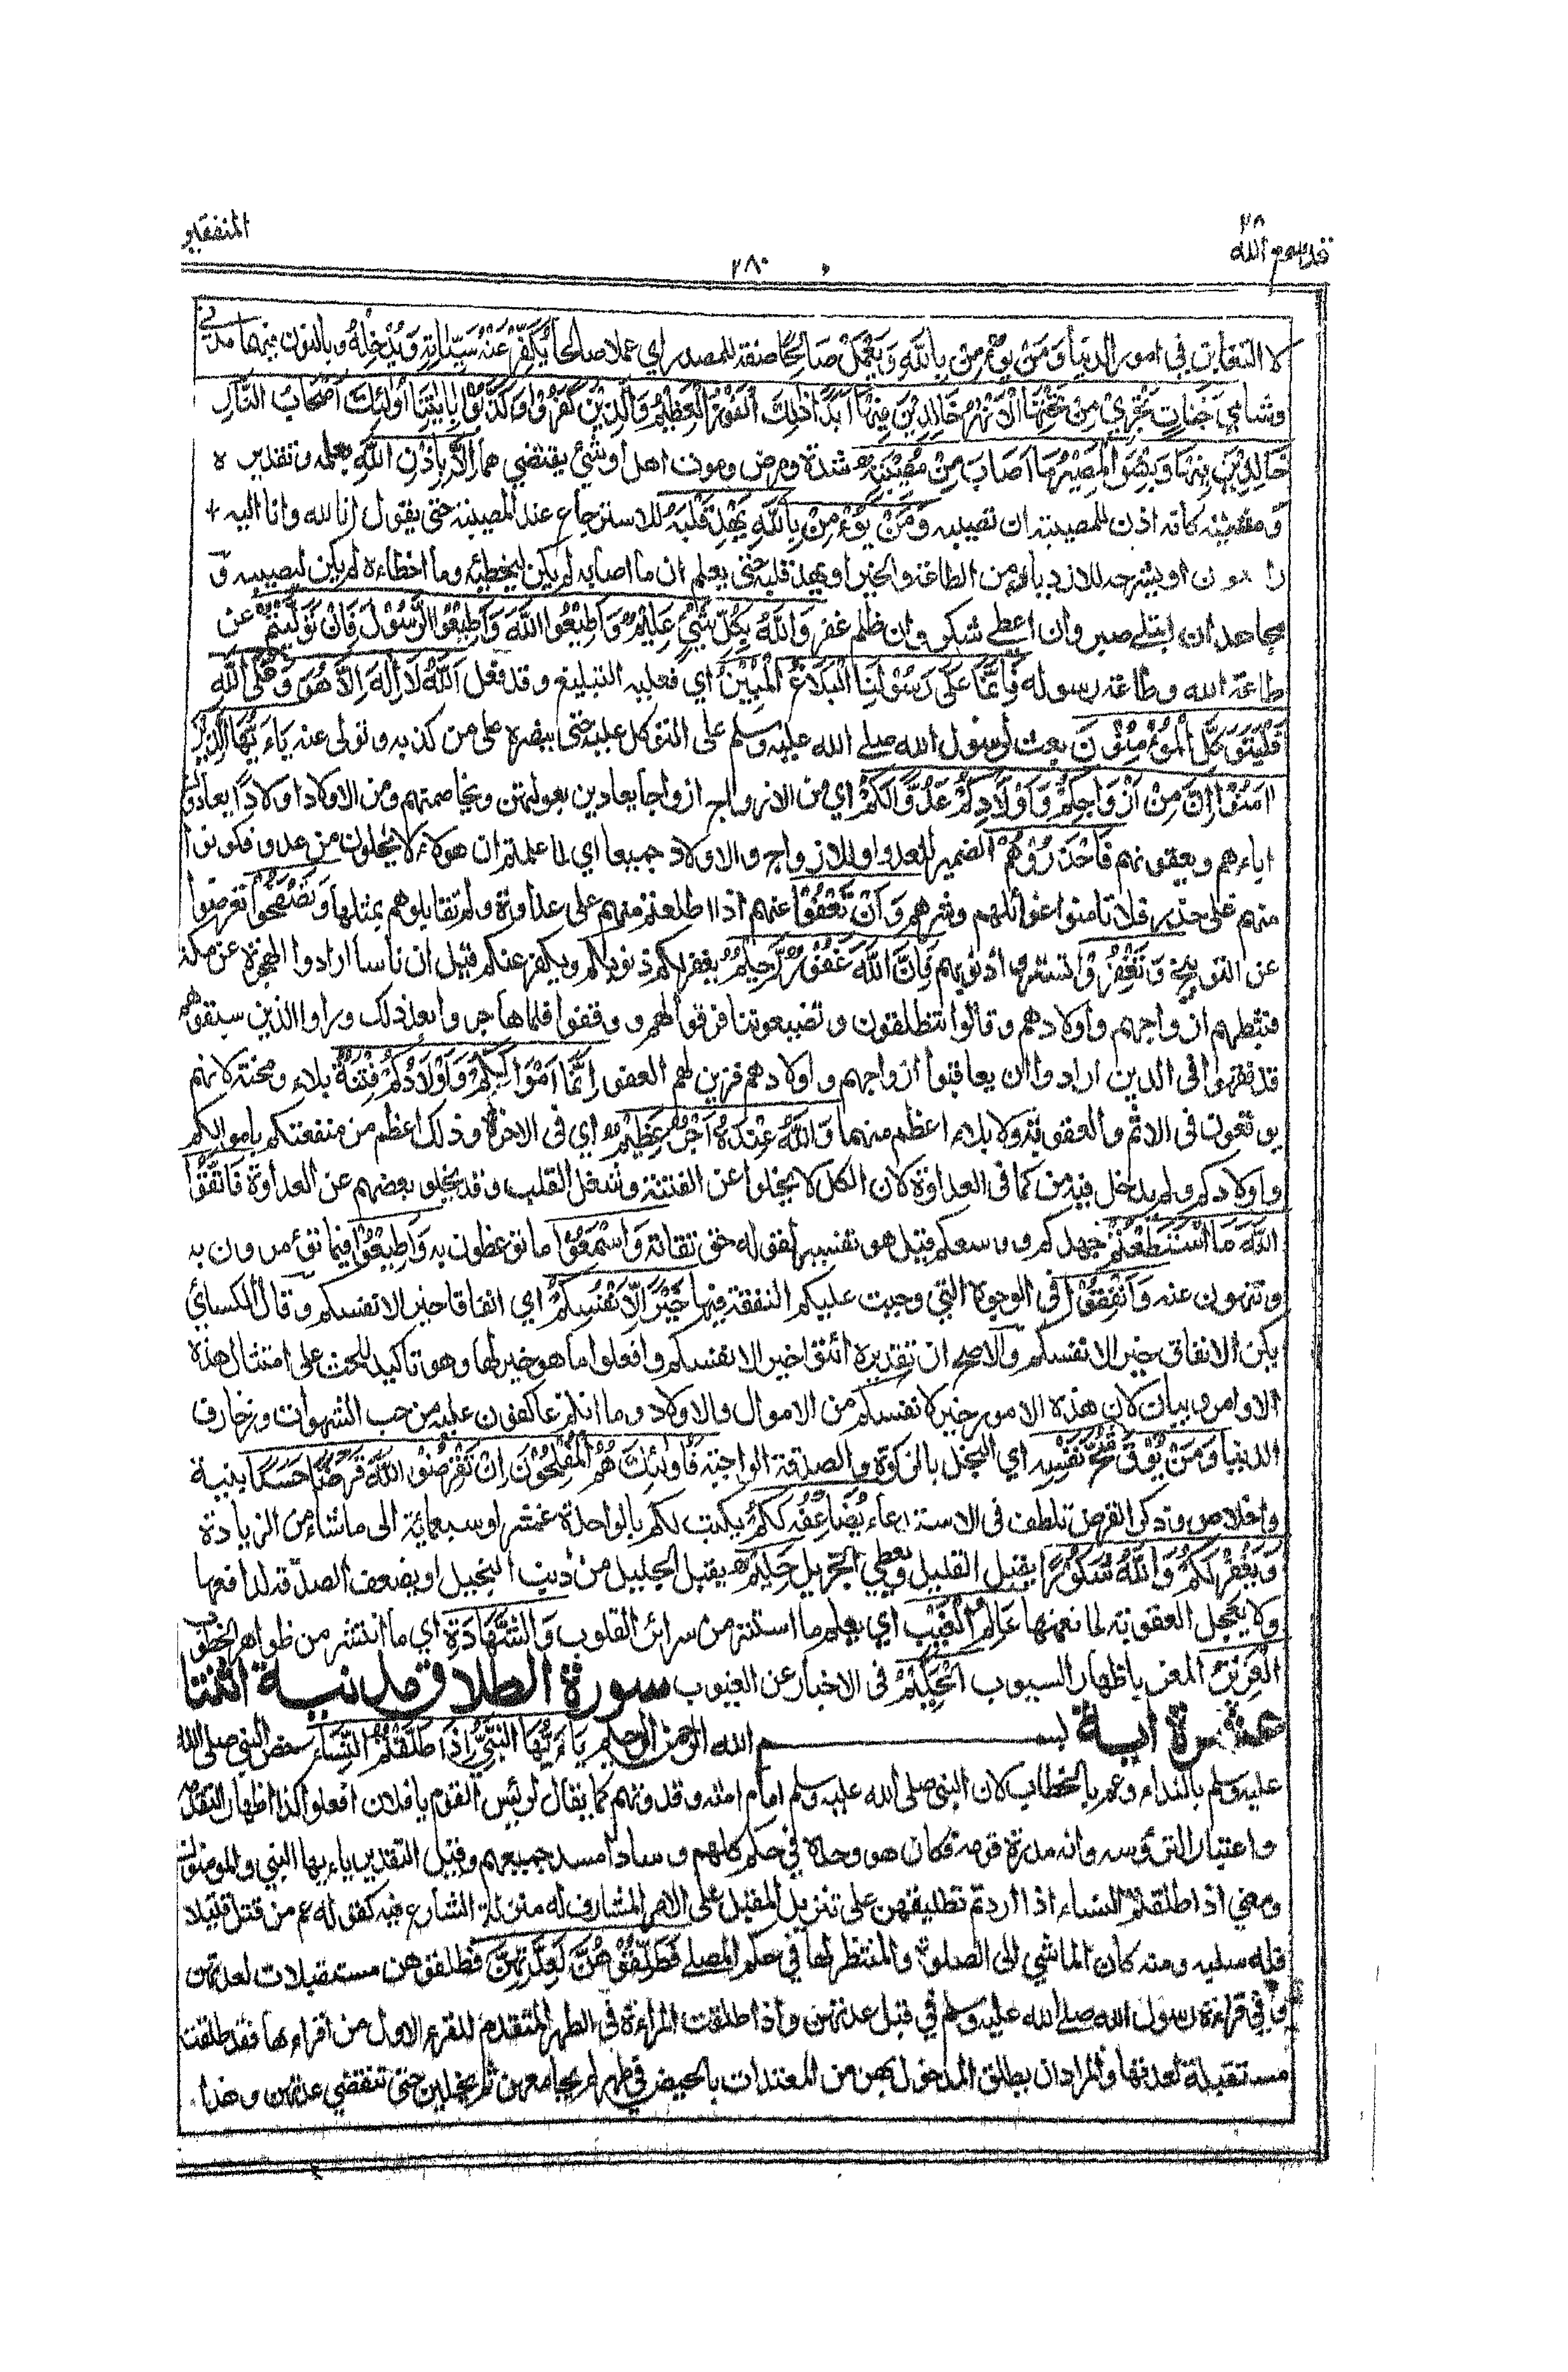 ٢٨
قد سمع الله
٢٨٠
المنفقين
لا التغابن فى امور الدنيا وَمَنْ يُؤْمِنْ بِاللّٰهِ وَيَعْمَلْ صَالِحًا صفة للمصدر اي عملا صالحا يُكَفِّرْ عَنْهُ سَيِّاٰتِهٖ وَيُدْخِلْهُ وبالنون فيهما مدنى
وشامي جَنّٰتٍ تَجْرِيْ مِنْ تَحْتِهَا الْاَنْهٰرُ خَالِدِيْنَ فِيْهَا اَبَدًا ذٰلِكَ الْفَوْزُ الْعَظِيْمُ وَالَّذِيْنَ كَفَرُوْا وَكَذَّبُوْا بِاٰيٰتِنَا اُولٰئِكَ اَصْحَابُ النَّارِ
خَالِدِيْنَ فِيْهَا وَبِئْسَ الْمَصِيْرُ مَا اَصَابَ مِنْ مُصِيْبَةٍ شدة ومرض وموت اهل او شيئ يقتضي هما اِلَّا بِاِذْنِ اللّٰهِ بعلمه وتقديره
ومشيئته كانه اذن للمصيبة ان تصيبه وَمَنْ يُؤْمِنْ بِاللّٰهِ يَهْدِ قَلْبَهٗ للاسترجاع عند المصيبة حتى يقول انا لله وانا اليه
راجعون او يشرحه للازدياد من الطاعة والخير او يهد قلبه حتى يعلم ان ما اصابه لم يكن ليخطئه وما اخطاءه لم يكن ليصيبه و
مجاهد ان ابتلى صبر وان اعطے شكر وان ظلم غفر وَاللّٰهُ بِكُلِّ شَيْءٍ عَلِيْمٌ وَاَطِيْعُوا اللّٰهَ وَاَطِيْعُوا الرَّسُوْلَ فَاِنْ تَوَلَّيْتُمْ عن
طاعة الله وطاعة رسوله فَاِنَّمَا عَلٰى رَسُوْلِنَا الْبَلَاغُ الْمُبِيْنُ اي فعليه التبليغ وقد فعل اَللّٰهُ لَا اِلٰهَ اِلَّا هُوَ وَعَلَى اللّٰهِ
فَلْيَتَوَكَّلِ الْمُؤْمِنُوْنَ بعث لرسول الله صلے الله عليه وسلم على التوكل عليه حتى ينصره على من كذبه وتولى عنه يَاءَيُّهَا الَّذِيْنَ
اٰمَنُوْا اِنَّ مِنْ اَزْوَاجِكُمْ وَاَوْلَادِكُمْ عَدُوًّا لَكُمْ اي من الازواج ازواجا يعادين بعولتهن ويخاصمنهم ومن الاولاد اولادا يعادون
اباءهم ويعقونهم فَاحْذَرُوْهُمْ الضمير للعدو او للازواج والاولاد جميعا اي لما علمتم ان هؤلاء لا يخلون من عدو فكونوا
منهم على حذر فلا تامنوا غوائلهم وشرهم وَاِنْ تَعْفُوْا عنهم اذا اطلعتم منهم على عداوة ولم تقابلوهم بمثلها وَتَصْفَحُوْا تعرضوا
عن التوبيخ وَتَغْفِرُوْا تستروا ذنوبهم فَاِنَّ اللّٰهَ غَفُوْرٌ رَّحِيْمٌ يغفر لكم ذنوبكم ويكفر عنكم قيل ان ناسا ارادوا الهجرة عن مكة
فثبطهم ازواجهم واولادهم وقالوا تنطلقون وتضيعوننا فرقوا لهم ووقفوا فلما هاجروا بعد ذلك وراوا الذين سبقوهم
قد فقهوا فى الدين ارادوا ان يعاقبوا ازواجهم واولادهم فزين لهم العفو اِنَّمَا اَمْوَالُكُمْ وَاَوْلَادُكُمْ فِتْنَةٌ بلاء ومحنة لانهم
يوقعون فى الاثم والعقوبة ولا بلاء اعظم منهما وَاللّٰهُ عِنْدَهٗ اَجْرٌ عَظِيْمٌ اي فى الاخرة وذلك اعظم من منفعتكم باموالكم
واولادكم ولم يدخل فيه من كما فى العداوة لان الكل لا يخلوا عن الفتنة وشغل القلب وقد يخلو بعضهم عن العداوة فَاتَّقُوْا
اللّٰهَ مَا اسْتَطَعْتُمْ جهدكم ووسعكم قيل هو تفسير لقوله حق تقاته وَاسْمَعُوْا ما توعظون به وَاَطِيْعُوْا فيما تؤمرون به
وتنهون عنه وَاَنْفِقُوْا فى الوجوه التي وجبت عليكم النفقة فيها خَيْرًا لِّاَنْفُسِكُمْ اي انفاقا خيرا لانفسكم وقال الكسائي
يكن الانفاق خيرا لانفسكم والاصح ان تقديره ائتوا خيرا لانفسكم وافعلوا ما هو خير لها وهو تاكيد للحث على امتثال هذه
الاوامر وبيان لان هذه الامور خير لانفسكم من الاموال والاولاد وما انتم عاكفون عليه من حب الشهوات وزخارف
الدنيا وَمَنْ يُوْقَ شُحَّ نَفْسِهٖ اي البخل بالزكوة والصدقة الواجبة فَاُولٰئِكَ هُمُ الْمُفْلِحُوْنَ اِنْ تُقْرِضُوا اللّٰهَ قَرْضًا حَسَنًا بنية
واخلاص وذكر القرض تلطف فى الاستدعاء يُضَاعِفْهُ لَكُمْ يكتب لكم بالواحدة عشرا او سبعمائة الى ما شاء من الزيادة
وَيَغْفِرْ لَكُمْ وَاللّٰهُ شَكُوْرٌ يقبل القليل ويعطي الجزيل حَلِيْمٌ يقيل الجليل من ذنب البخيل او يضعف الصدقة لدافعها
ولا يعجل العقوبة لمانعها عَالِمُ الْغَيْبِ اي يعلم ما استتر من سرائر القلوب وَالشَّهَادَةِ اي ما انتشر من ظواهر الخطوب
الْعَزِيْزُ المعز باظهار السيوب الْحَكِيْمُ فى الاخبار عن الغيوب سورة الطلاق مدنية اثنتا
عشرة اية بسم الله الرحمن الرحيم يَاءَيُّهَا النَّبِيُّ اِذَا طَلَّقْتُمُ النِّسَاءَ خص النبى صلى الله
عليه وسلم بالنداء وعم بالخطاب لان النبى صلى الله عليه وسلم امام امته وقدوتهم كما يقال لرئيس القوم يا فلان افعلوا كذا اظهارا لتقدمه
واعتبارا لترؤسه وانه مدرة قومه فكان هو وحده في حكم كلهم وسادا مسد جميعهم وقيل التقدير ياءيها النبى والمومنون
ومعنى اذا طلقتم النساء اذا اردتم تطليقهن على تنزيل المقبل على الامر المشارف له منزلة الشارع فيه كقوله عم من قتل قتيلا
فله سلبه ومنه كان الماشي الى الصلوة والمنتظر لها في حكم المصلے فَطَلِّقُوْهُنَّ لِعِدَّتِهِنَّ فطلقوهن مستقبلات لعدتهن
وفى قراءة رسول الله صلے الله عليه وسلم في قبل عدتهن واذا طلقت المراءة فى الطهر المتقدم للقرء الاول من اقراءها فقد طلقت
مستقبلة لعدتها والمراد ان يطلق المدخول بهن من المعتدات بالحيض في طهر لم يجامعهن ثم يخلين حتى تنقضي عدتهن وهذا